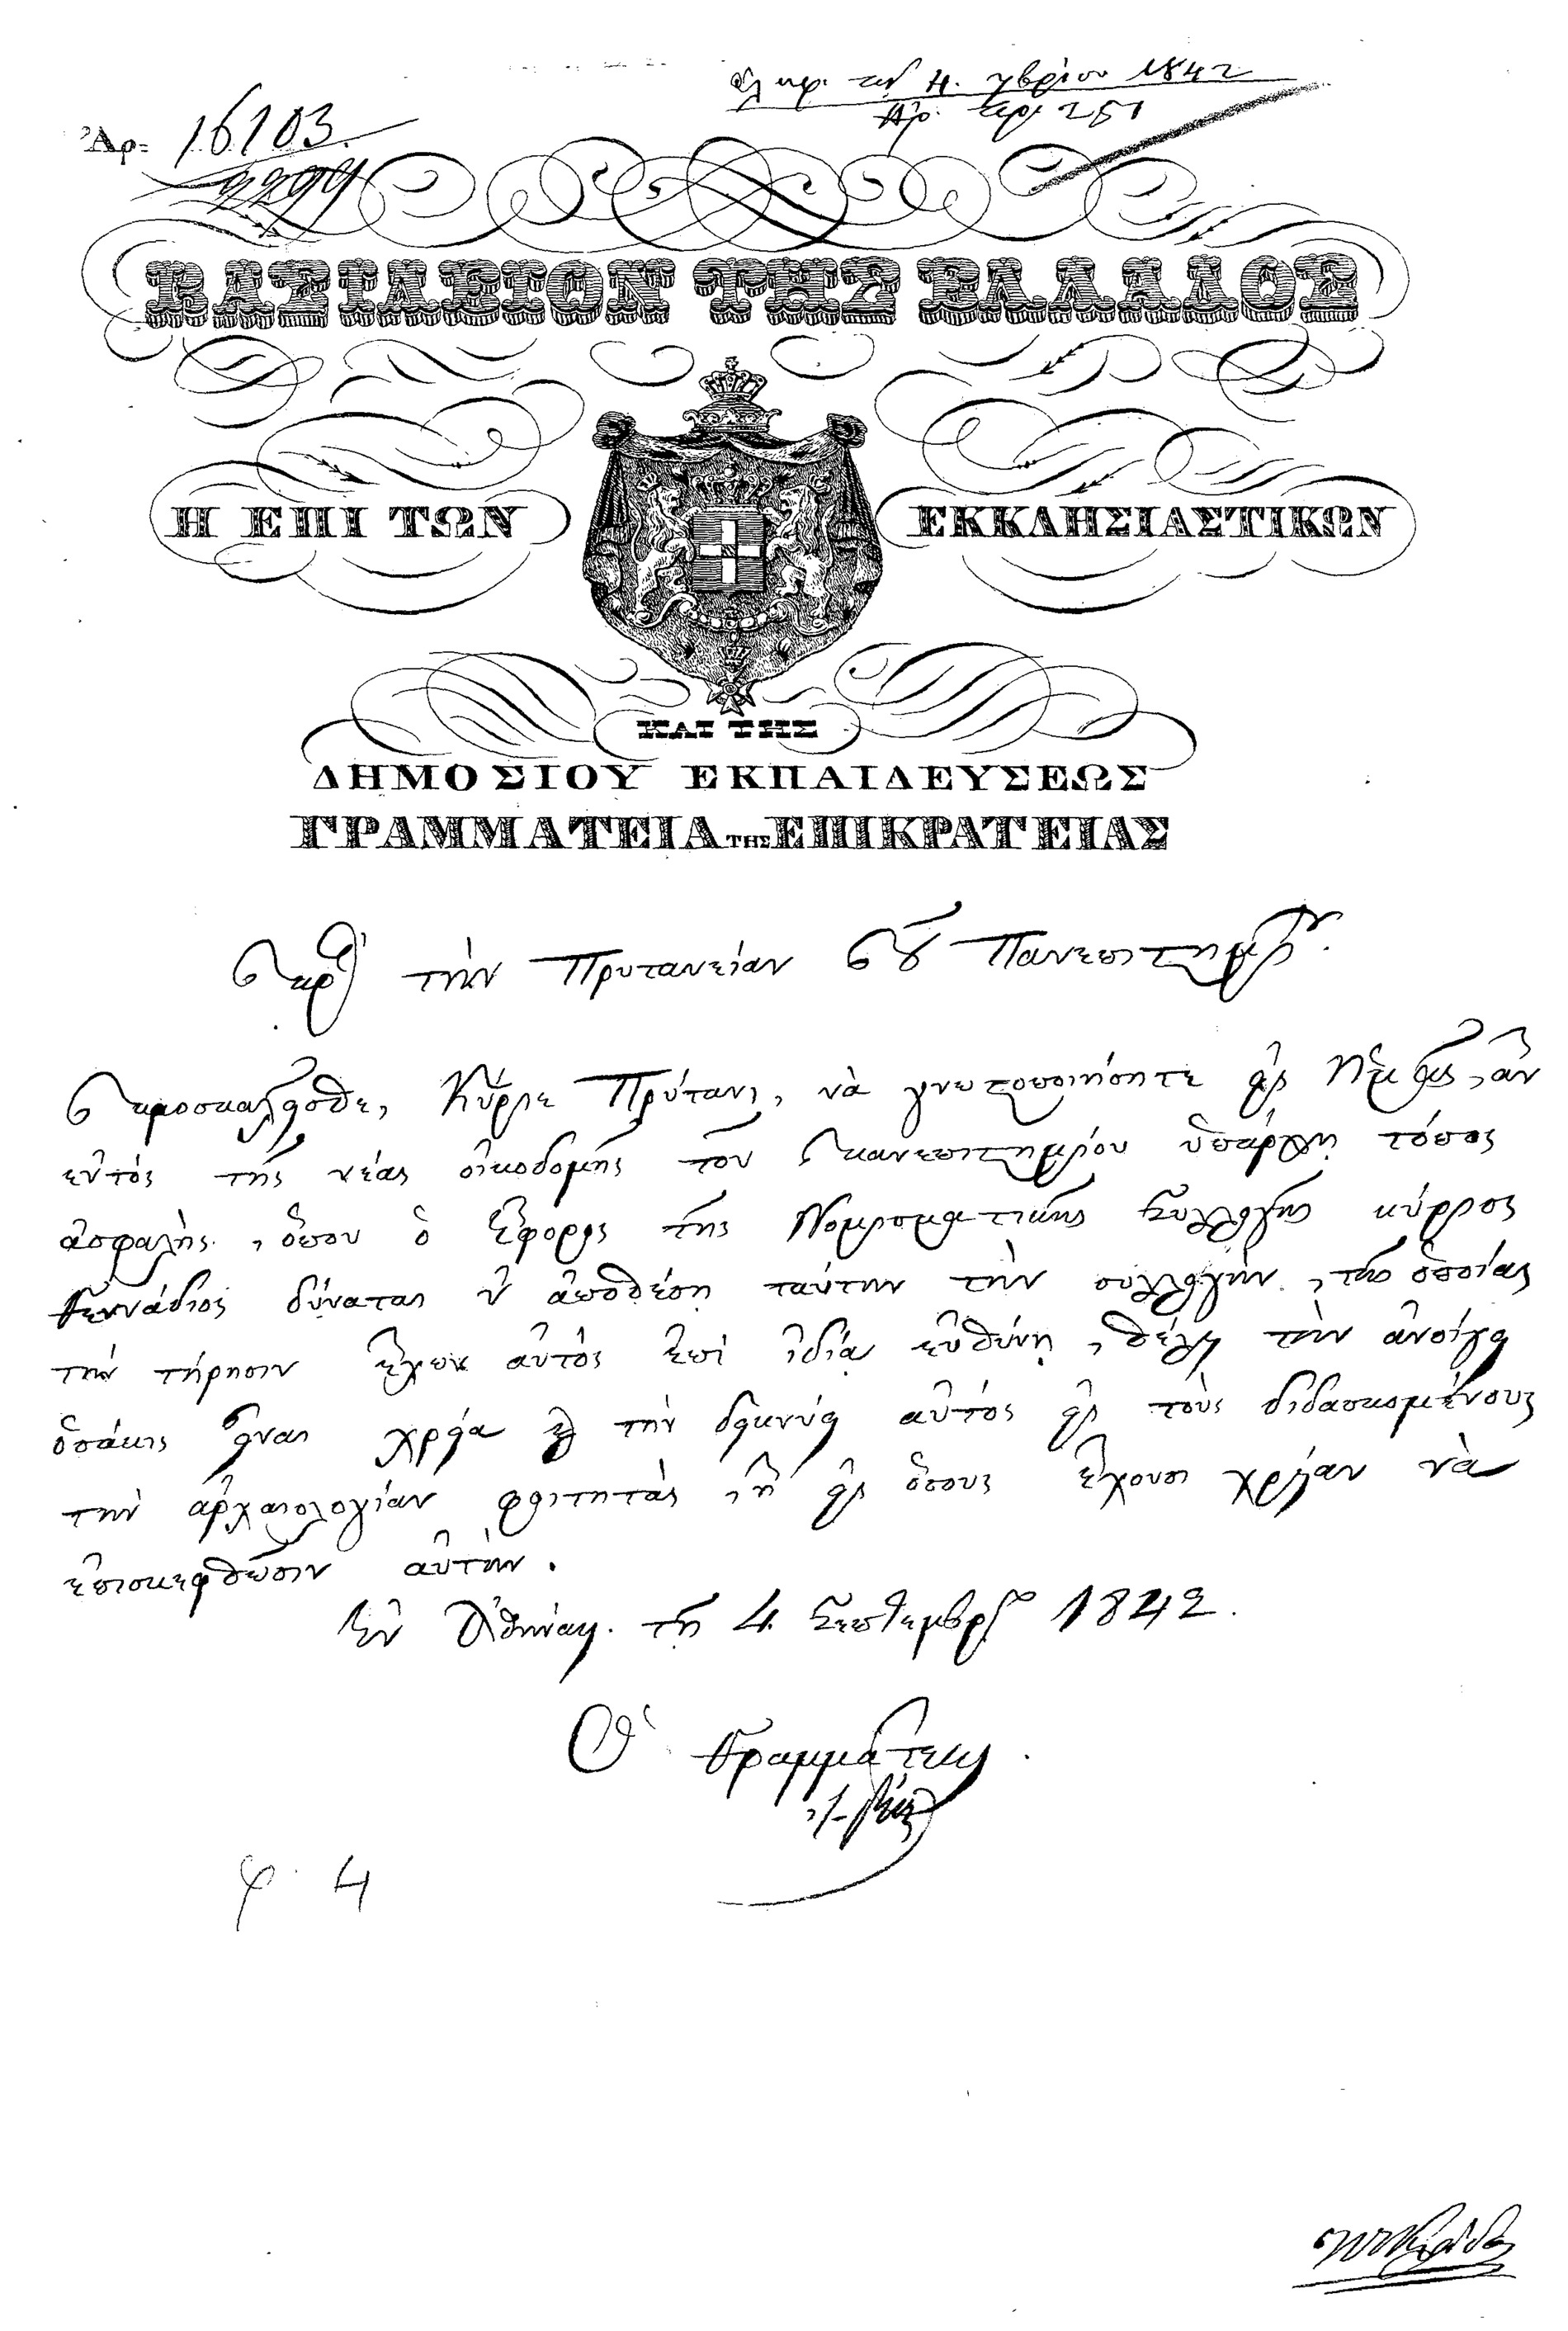 Ἀρ= 16103.
2299
1842
Ἀρ. πρ. 251
ΒΑΣΙΛΕΙΟΝ ΤΗΣ ΕΛΛΑΔΟΣ
Η ΕΠΙ ΤΩΝ ΕΚΚΛΗΣΙΑΣΤΙΚΩΝ
ΚΑΙ ΤΗΣ
ΔΗΜΟΣΙΟΥ ΕΚΠΑΙΔΕΥΣΕΩΣ
ΓΡΑΜΜΑΤΕΙΑ ΤΗΣ ΕΠΙΚΡΑΤΕΙΑΣ
Πρὸς τὴν Πρυτανείαν τοῦ Πανεπιστημίου.
Προσκαλεῖσθε, Κύριε Πρύτανι, νὰ γνωστοποιήσητε εἰς Ἡμᾶς, ἂν
ἐντὸς τῆς νέας οἰκοδομῆς τοῦ Πανεπιστημίου ὑπάρχῃ τόπος
ἀσφαλὴς, ὅπου ὁ Ἔφορος τῆς Νομισματικῆς Συλλογῆς κύριος
Γεννάδιος δύναται ν' ἀποθέσῃ ταύτην τὴν συλλογὴν, τῆς ὁποίας
τὴν τήρησιν ἔχων αὐτὸς ἐπὶ ἰδίᾳ εὐθύνῃ, θέλει τὴν ἀνοίγει
ὁσάκις εἶναι χρεία καὶ τὴν δεικνύει αὐτὸς εἰς τοὺς διδασκομένους
τὴν ἀρχαιολογίαν φοιτητὰς, ἢ εἰς ὅσους ἔχουσι χρείαν νὰ
ἐπισκεφθῶσιν αὐτήν.
Ἐν Ἀθήναις. τῇ 4 Σεπτεμβρίου 1842.
Ὁ Γραμματεὺς.
φ. 4